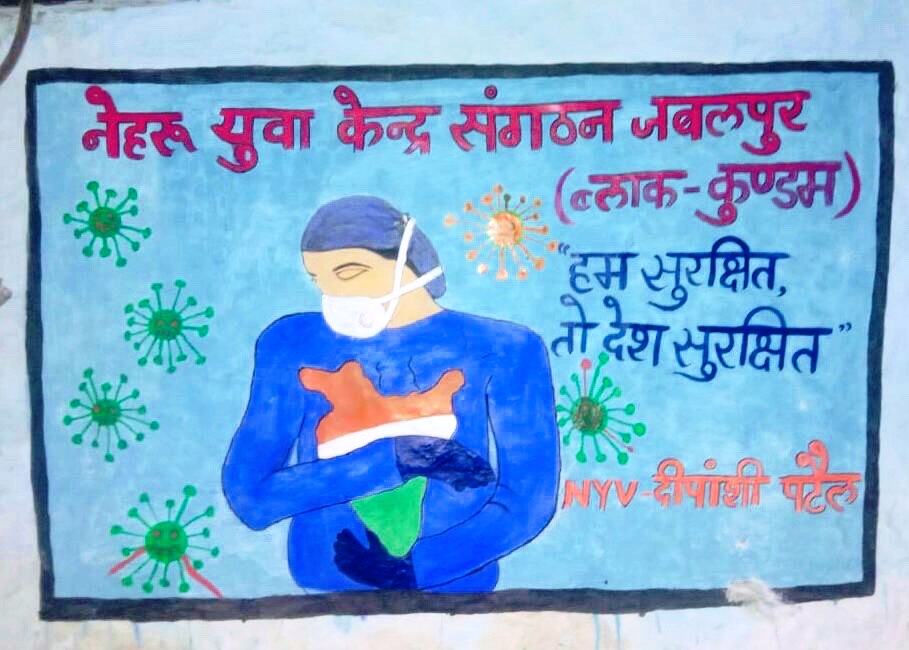 नेहरू युवा केन्द्र संगठन जबलपुर
(ब्लाक-कुण्डम)
"हम सुरक्षित,
तो देश सुरक्षित"
NYV-दीपांशी पटैल